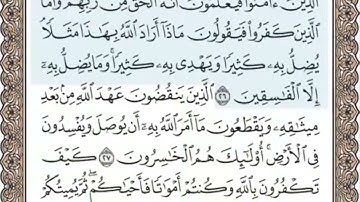 الَّذِينَ ءَامَنُوا فَيَعْلَمُونَ أَنَّهُ الْحَقُّ مِن رَّبِّهِمْ وَأَمَّا
الَّذِينَ كَفَرُوا فَيَقُولُونَ مَاذَا أَرَادَ اللَّهُ بِهَٰذَا مَثَلًا
يُضِلُّ بِهِ كَثِيرًا وَيَهْدِي بِهِ كَثِيرًا وَمَا يُضِلُّ بِهِ
إِلَّا الْفَاسِقِينَ ٢٦ الَّذِينَ يَنقُضُونَ عَهْدَ اللَّهِ مِن بَعْدِ
مِيثَاقِهِ وَيَقْطَعُونَ مَا أَمَرَ اللَّهُ بِهِ أَن يُوصَلَ وَيُفْسِدُونَ
فِي الْأَرْضِ أُولَٰئِكَ هُمُ الْخَاسِرُونَ ٢٧ كَيْفَ
تَكْفُرُونَ بِاللَّهِ وَكُنتُمْ أَمْوَاتًا فَأَحْيَاكُمْ ثُمَّ يُمِيتُكُمْ